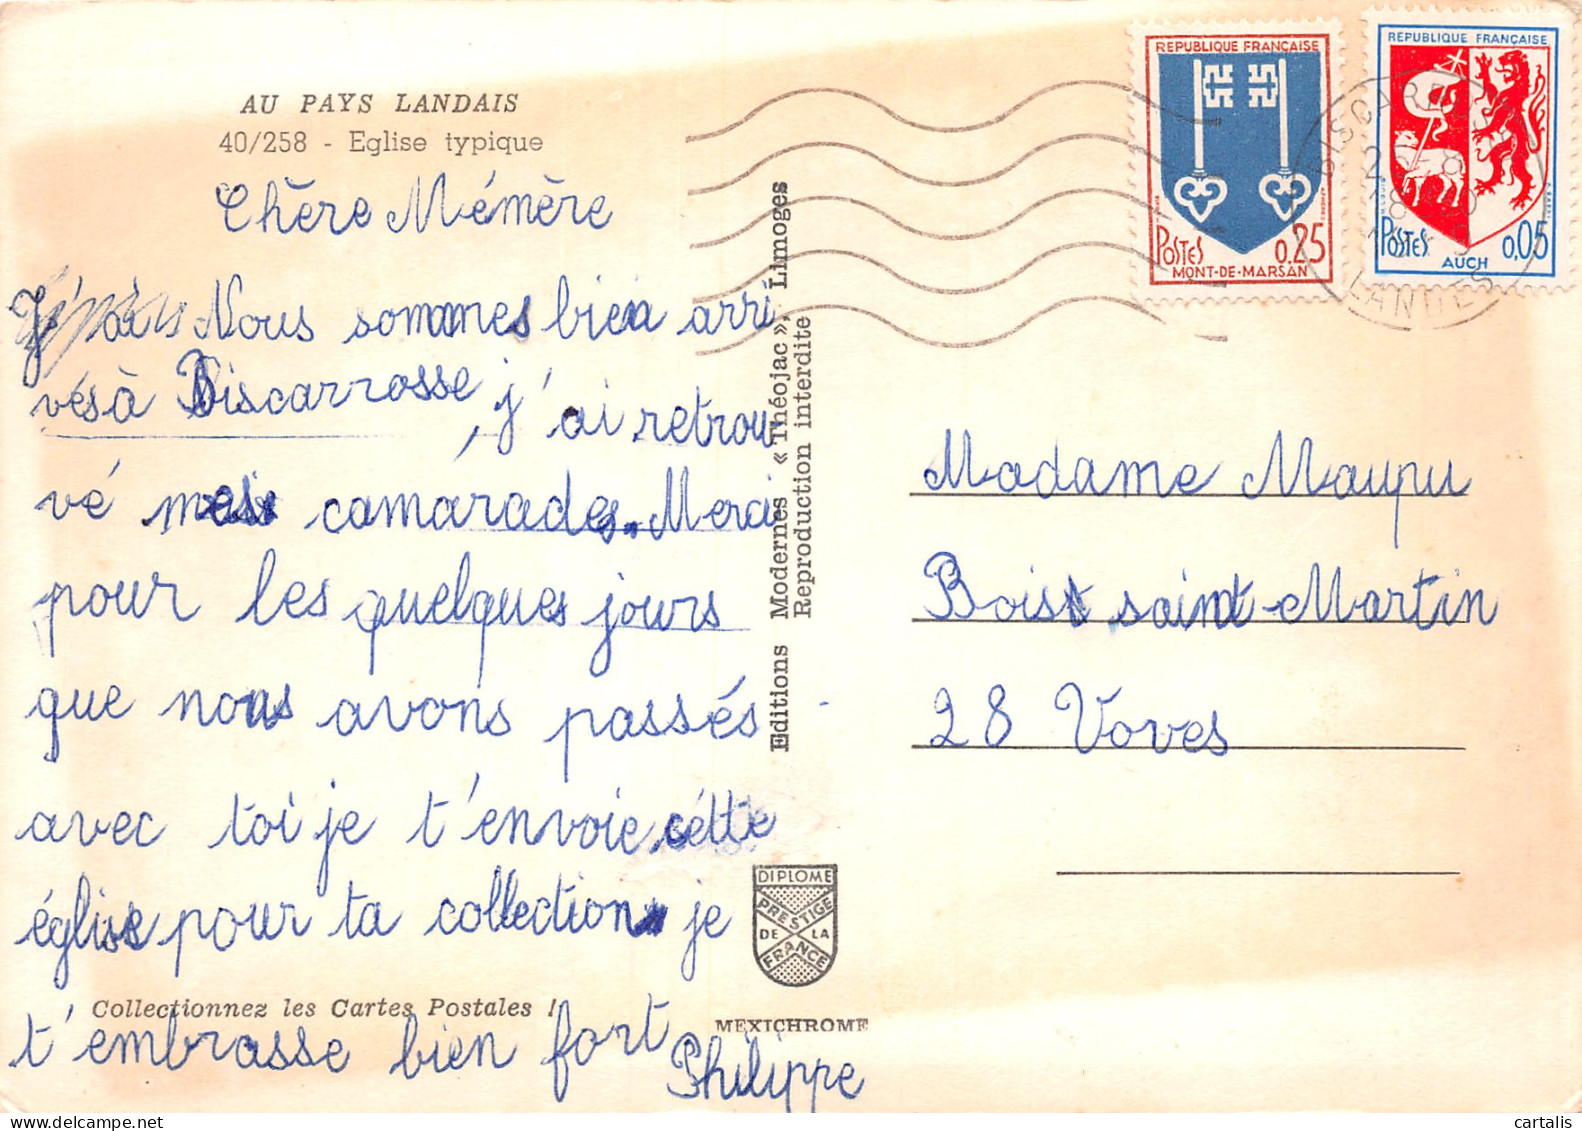 AU PAYS LANDAIS
40/258 - Eglise typique
Chère Mémère
Nous sommes bien arri
vés à Biscarrosse, j'ai retrou
vé mes camarades. Merci
pour les quelques jours
que nous avons passés
avec toi je t'envoie cette
église pour ta collection je
t'embrasse bien fort
Philippe
Collectionnez les Cartes Postales !
Editions Modernes « Théojac », Limoges
Reproduction interdite
DIPLOME
PRESTIGE
DE LA
FRANCE
MEXICHROME
REPUBLIQUE FRANÇAISE
POSTES 0,25
MONT-DE-MARSAN
REPUBLIQUE FRANÇAISE
POSTES 0,05
AUCH
BISCARROSSE
LANDES
Madame Maupu
Bois saint-Martin
28 Voves
cartalis